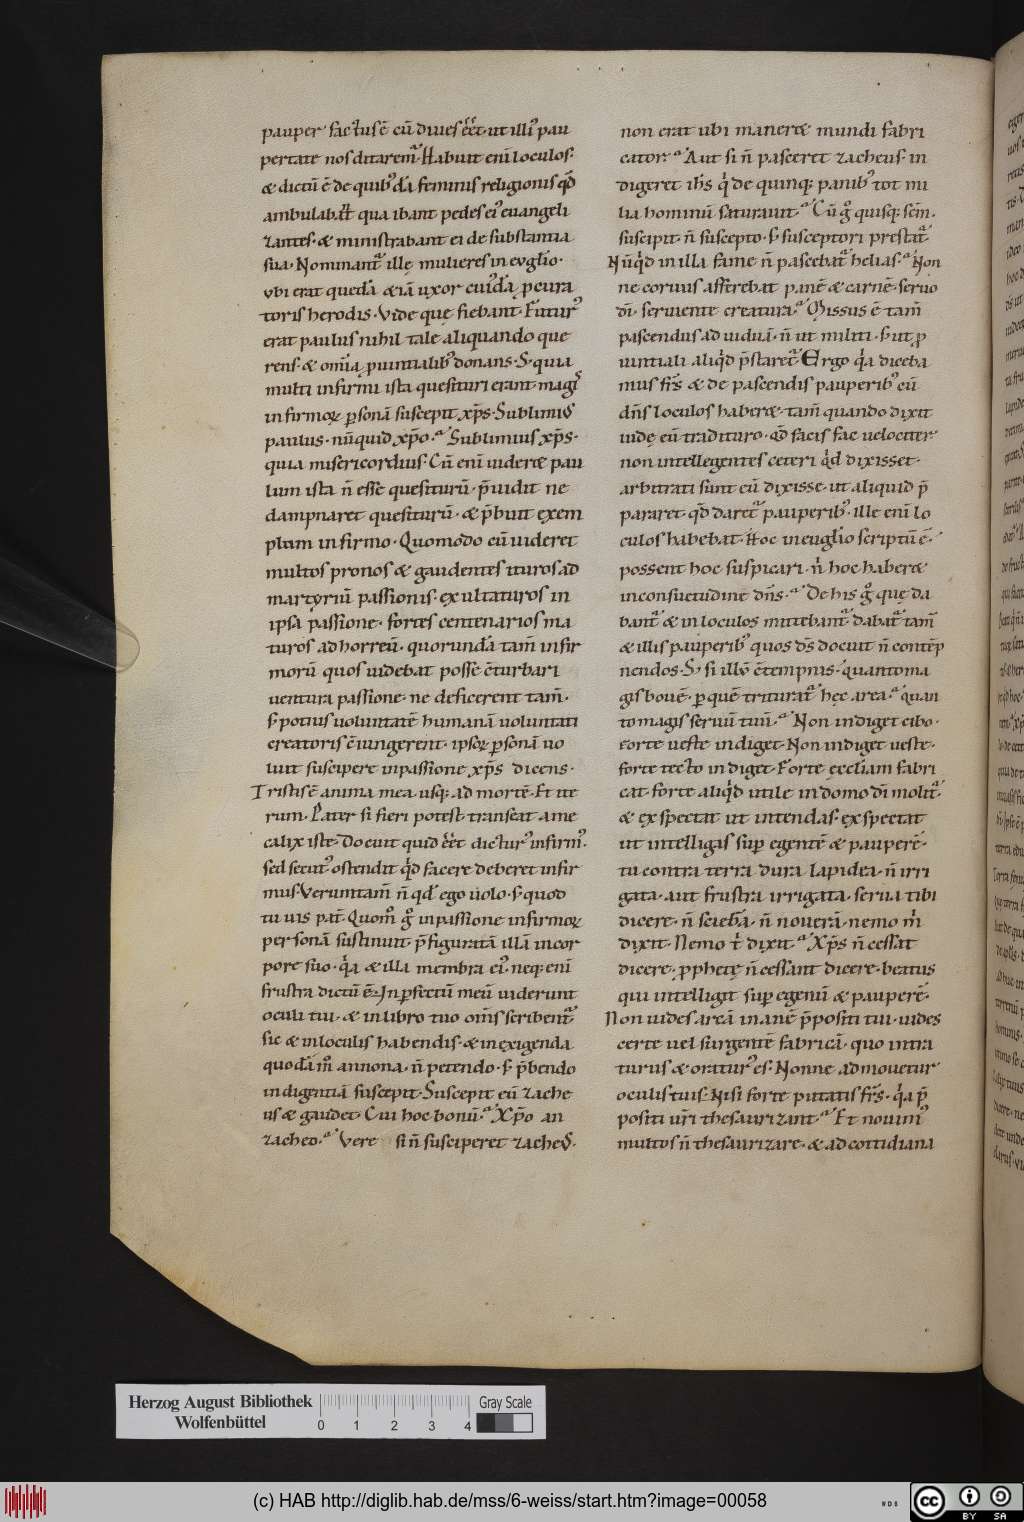 pauper factus ē cū diues eēt· ut illi᾽ pau
pertate nos ditarem᾽· Habuit eni loculos·
& dictū ē de quib᾽dā feminis religionis qđ
ambulabāt qua ibant pedes ei᾽ euangeli
zantes· & ministrabant ei de substantia
sua· Nominant᾽ illę mulieres in euglio·
ubi erat quedā & iā uxor cui᾽dā pcura
toris herodis· Vide quę fiebant· Futur᾽
erat paulus nihil tale aliquando que
rens· & omia puintialib᾽ donans· S; quia
multi infirmi ista quesituri erant· magis
infirmoꝝ psonā suscepit xp̄s· Sublimius
paulus· nūquid xp̄o· Sublimius xp̄s·
quia misericordius· Cū eni uider& pau
lum ista ñ esse quesiturū· p̄uidit ne
dampnaret quesiturū· & p̄buit exem
plum infirmo· Quomodo cū uideret
multos pronos & gaudentes ituros ad
martyriū passionis· exultaturos in
ipsa passione· fortes centenarios ma
turos ad horreū· quorundā tam infir
morū quos uidebat posse c̄turbari
uentura passione· ne deficerent tam̄·
s; potius uoluntatē humanā uoluntati
creatoris c̄iungerent· ipsoꝝ psonā uo
luit suscipere inpassione xp̄s dicens·
Tristis ē anima mea usq; ad mortē· Et ite
rum· Pater si fieri potest transeat a me
calix iste· Docuit quid eēt dictur᾽ infirm᾽·
sed secut᾽ ostendit qd facere deberet infir
mus· Veruntam̄ ñ qd ego uolo· s; quod
tu uis pat̄· Quom̄ g° inpassione infirmoꝝ
personā sustinuit p̄figuratā illā incor
pore suo· qa & illa membra ei᾽· neq; eni
frustra dictū ē· Inpfectū meū uiderunt
oculi tui· & in libro tuo om̄s scribent᾽·
sic & in loculis habendis· & in exigenda
quodā m° annona· ñ petendo· s; p̄bendo
indigentiā suscepit· Suscepit eū zache
us & gaudet· Cui hoc bonū· Xp̄o an
zacheo· Vere si ñ susciperet zacheus·
non erat ubi maner& mundi fabri
cator· Aut si ñ pasceret zacheus· in
digeret ihs qi de quinq; panib᾽ tot mi
lia hominū saturauit· Cū g° quisq; scm̄
suscipit· ñ suscepto· s; susceptori prestat᾽
Nūqd in illa fame ñ pascebat᾽ helias· Non
ne coruus afferebat panē & carnē· seruo
dī· seruiente creatura· Missus ē tam̄
pascendus ad uiduā· ñ ut militi· s; ut p
uintiali aliqd p̄staret᾽· Ergo qa diceba
mus fr̄s & de pascendis pauperib᾽ cū
dn̄s loculos haber&· tam̄ quando dixit
iudę eū tradituro· qd facis fac uelociter·
non intellegentes ceteri qd dixisset·
arbitrati sunt eū dixisse· ut aliquid p̄
pararet· qd daret᾽ pauperib᾽· ille eni lo
culos habebat· Hoc in euglio scriptū ē·
possent hoc suspicari· ñ hoc haber&
inconsuetudine dn̄s· De his g° quę da
bant᾽ & in loculos mittebant᾽· dabat᾽ tam̄
& illis pauperib᾽ quos dn̄s docuit ñ contēp
nendos· S; si illū c̄tempnis· quanto ma
gis bouē· p quē triturat᾽ hęc area· quan
to magis seruū tuū· Non indiget cibo·
forte ueste indiget· Non indiget ueste·
forte tecto indiget· Forte ęccliam fabri
cat· forte aliqd utile in domo dī molit᾽·
& exspectat ut intendas· exspectat
ut intelligas sup egentē & pauperē·
tu contra terra dura lapidea· ñ irri
gata· aut frustra irrigata· seruas tibi
dicere· ñ sciebā· ñ nouerā· nemo m
dixit· Nemo t dixit· Xp̄s ñ cessat
dicere· pphetę ñ cessant dicere· beatus
qui intelligit sup egenū & pauperē·
Non uides areā inanē p̄positi tui· uides
certe uel surgentē fabricā· quo intra
turus & oratur᾽ es· Nonne admouetur
oculis tuis· Nisi forte putatis fr̄s· qa p̄
positi ur̄i thesaurizant· Et noui mi᾽
multos ñ thesaurizare· & ad cottidiana
Herzog August Bibliothek
Wolfenbüttel
0 1 2 3 4
Gray Scale
(c) HAB http://diglib.hab.de/mss/6-weiss/start.htm?image=00058
cc BY SA